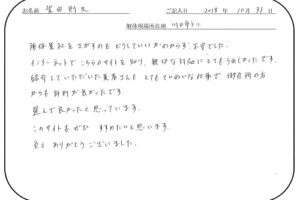 お名前 ご記入日 2018年10月31日
解体現場所在地
解体業社をさがすのも どうしていいかわからず 不安でした。
インターネットで こちらのサイトを知り、親切な対応に とてもうれしかったです。
紹介していただいた業者さんも とてもていねいな仕事で 御近所の方
からも 評判が良かったです。
選んで良かったと思っています。
このサイトを ぜひ すすめたいと思います。
ありがとうございました。